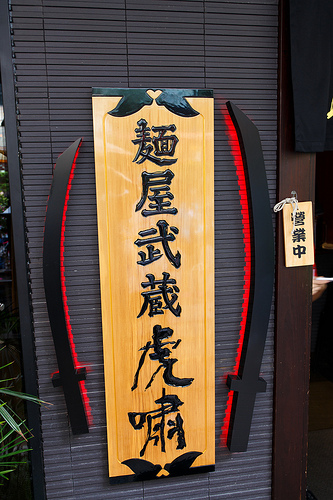 麺屋武蔵虎嘯
営業中